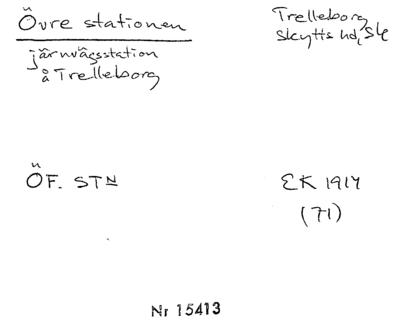 Övre stationen
järnvägsstation
å Trelleborg
Trelleborg
Skytts hd, Sk
ÖF. STN
EK 1914
(71)
Nr 15413